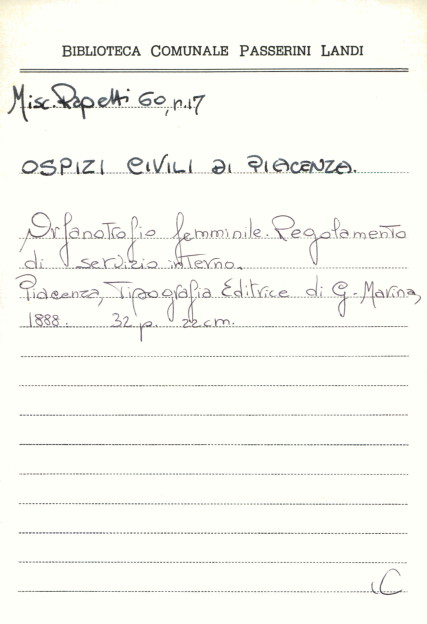 BIBLIOTECA COMUNALE PASSERINI LANDI
Misc. Rapetti 60, n.17
OSPIZI CIVILI DI PIACENZA.
Orfanotrofio femminile. Regolamento
di servizio interno.
Piacenza, Tipografia Editrice di G. Marina,
1888. 32 p. 22 cm.
C